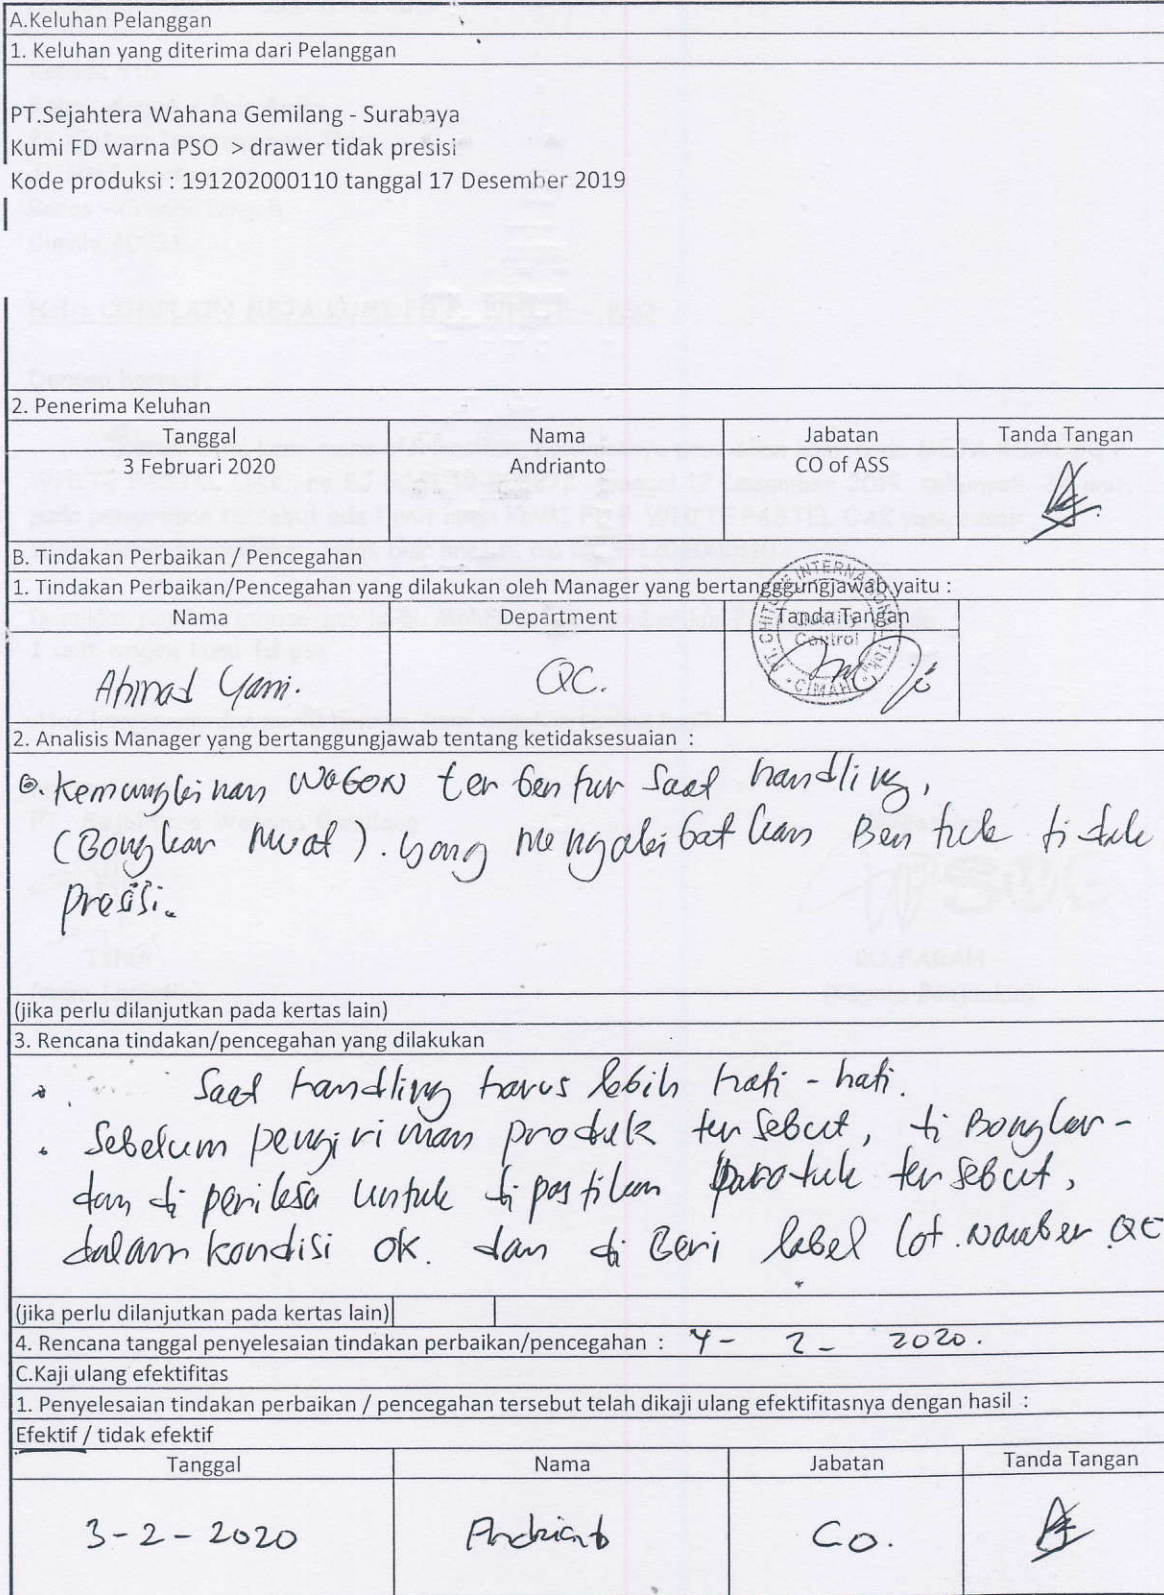 A.Keluhan Pelanggan
1. Keluhan yang diterima dari Pelanggan
PT.Sejahtera Wahana Gemilang - Surabaya
Kumi FD warna PSO > drawer tidak presisi
Kode produksi : 191202000110 tanggal 17 Desember 2019
2. Penerima Keluhan
Tanggal Nama Jabatan Tanda Tangan
3 Februari 2020 Andrianto CO of ASS
B. Tindakan Perbaikan / Pencegahan
1. Tindakan Perbaikan/Pencegahan yang dilakukan oleh Manager yang bertangggungjawab yaitu :
Nama Department Tanda Tangan
Control
CIMAHI
Ahmad Yani. QC.
2. Analisis Manager yang bertanggungjawab tentang ketidaksesuaian :
Kemungkinan WAGON terbentur Saat handling,
(Bongkar Muat). yang mengakibatkan Bentuk tidak
presisi.
(jika perlu dilanjutkan pada kertas lain)
3. Rencana tindakan/pencegahan yang dilakukan
Saat handling harus lebih hati - hati.
Sebelum pengiriman produk tersebut, di Bongkar -
dan di periksa untuk di pastikan produk tersebut,
dalam kondisi ok. dan di Beri label lot. Number QC
(jika perlu dilanjutkan pada kertas lain)
4. Rencana tanggal penyelesaian tindakan perbaikan/pencegahan : 4 - 2 - 2020.
C.Kaji ulang efektifitas
1. Penyelesaian tindakan perbaikan / pencegahan tersebut telah dikaji ulang efektifitasnya dengan hasil :
Efektif / tidak efektif
Tanggal Nama Jabatan Tanda Tangan
3 - 2 - 2020 Andrianto Co.